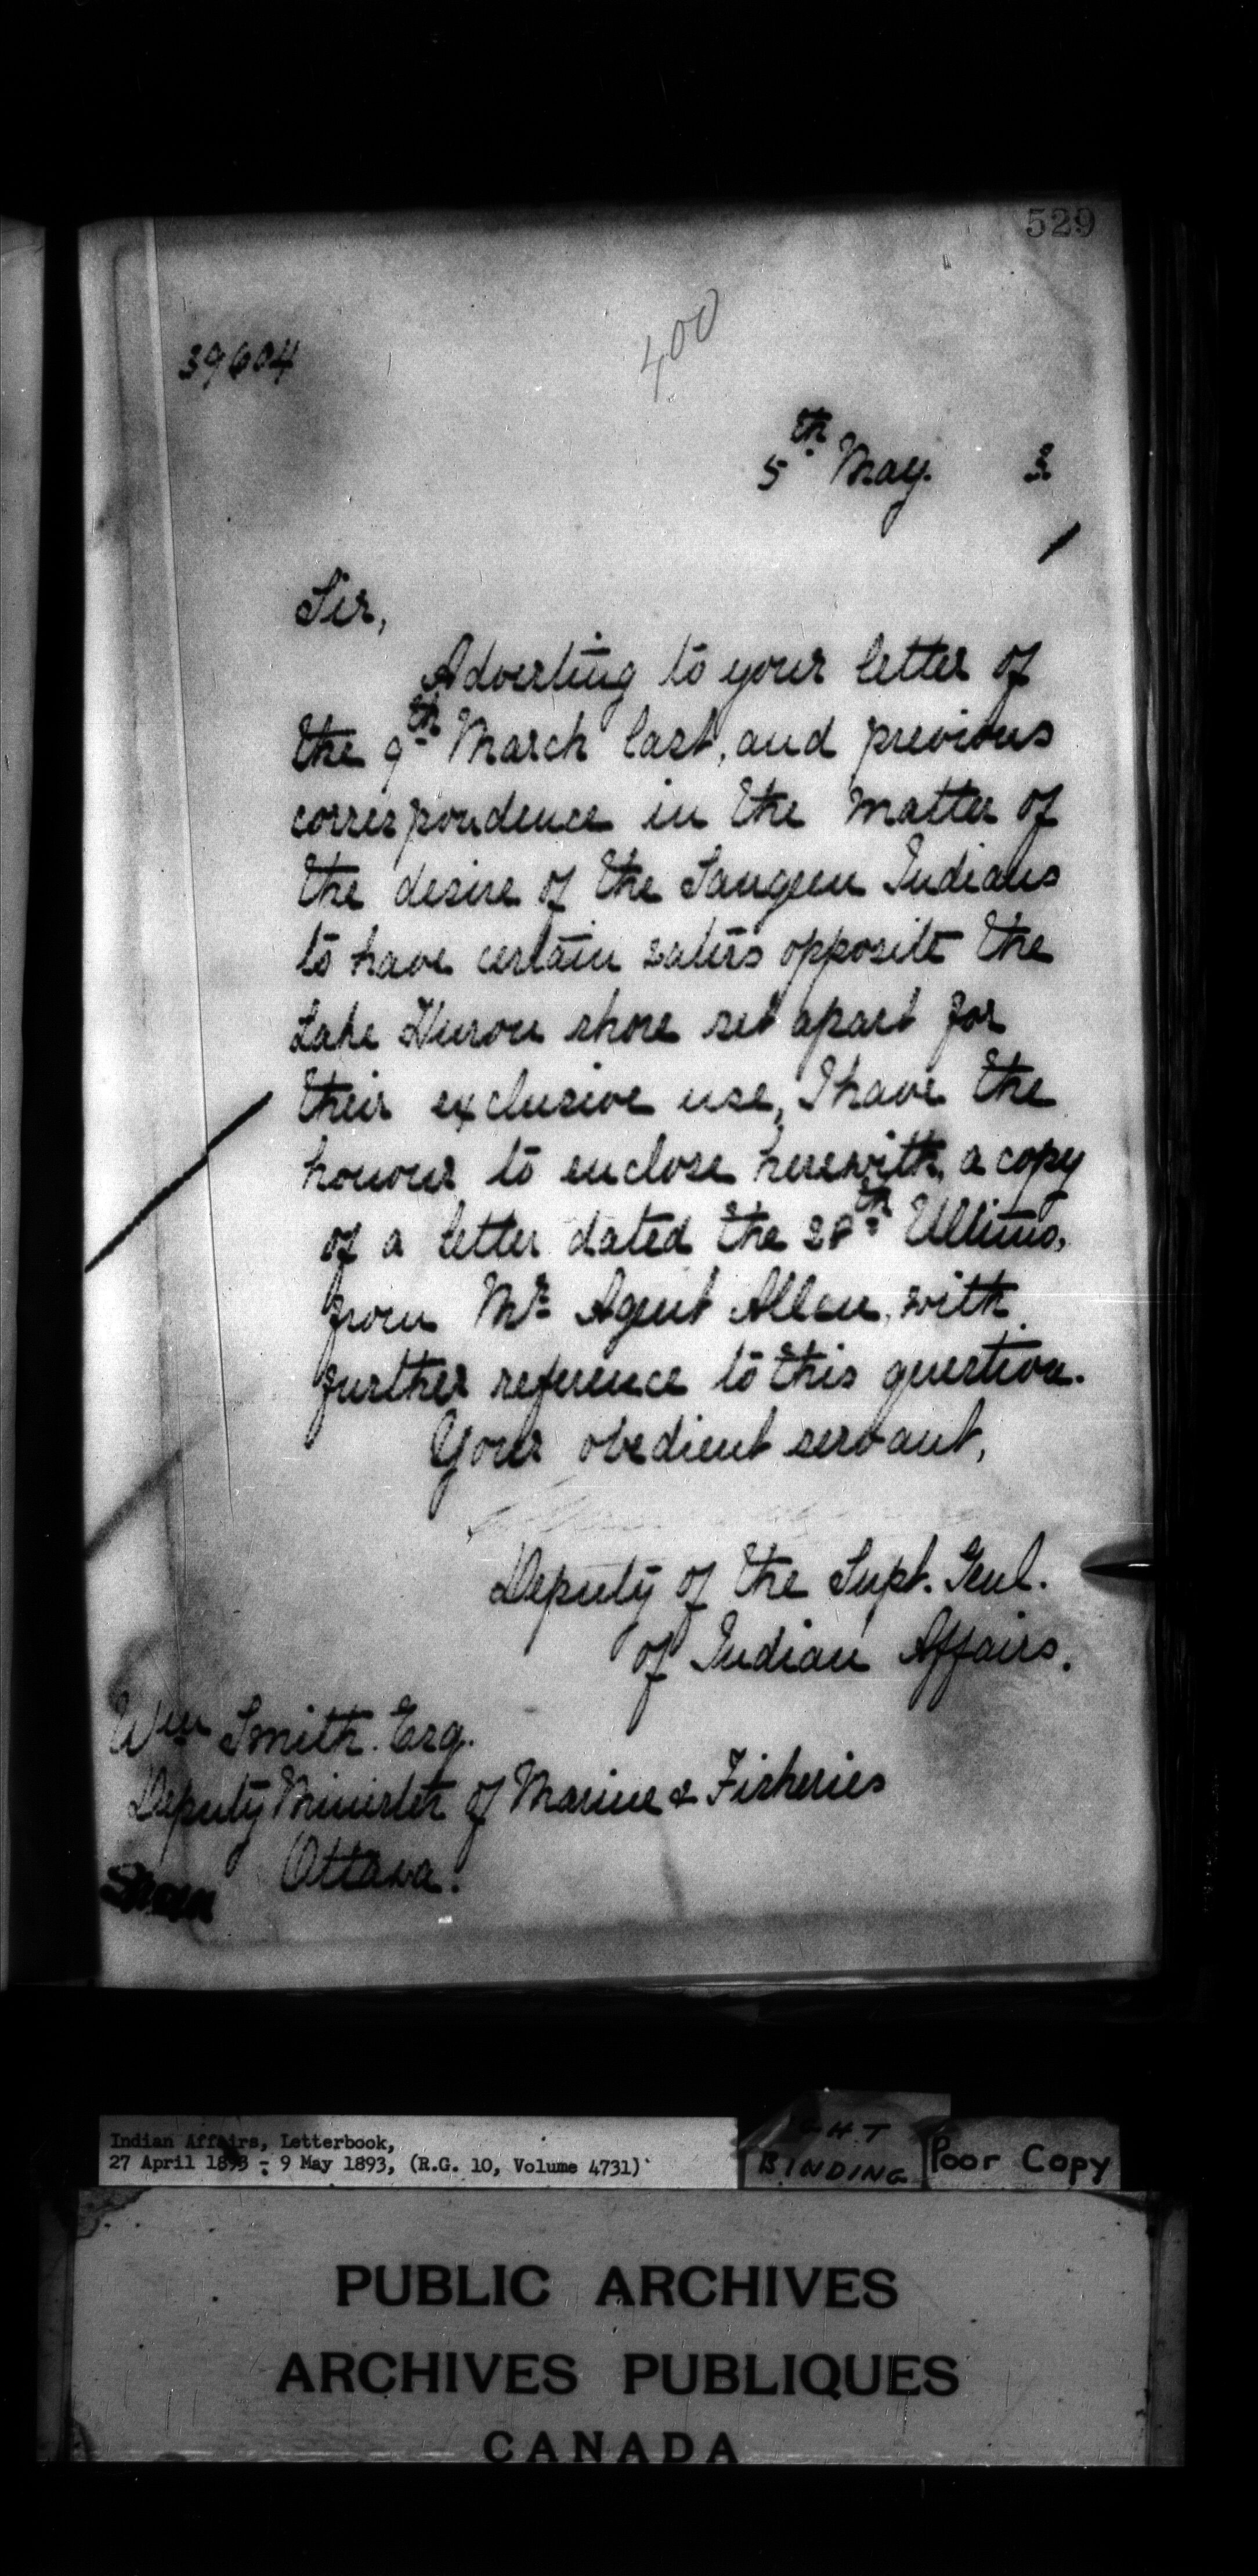 529
400
39604
5th May. 3
Sir,
Adverting to your letter of
the 9th March last, and previous
correspondence in the matter of
the desire of the Saugeen Indians
to have certain waters opposite the
Lake Huron shore set apart for
their exclusive use, I have the
honour to enclose herewith, a copy
of a letter dated the 28th Ultimo,
from Mr Agent Allen, with
further reference to this question.
Your obedient servant,
Deputy of the Supt. Genl.
of Indian Affairs.
Wm Smith. Esq.
Deputy Minister of Marine & Fisheries
Ottawa.
Indian Affairs, Letterbook,
27 April 1893 - 9 May 1893, (R.G. 10, Volume 4731)
BINDING
Poor Copy
PUBLIC ARCHIVES
ARCHIVES PUBLIQUES
CANADA